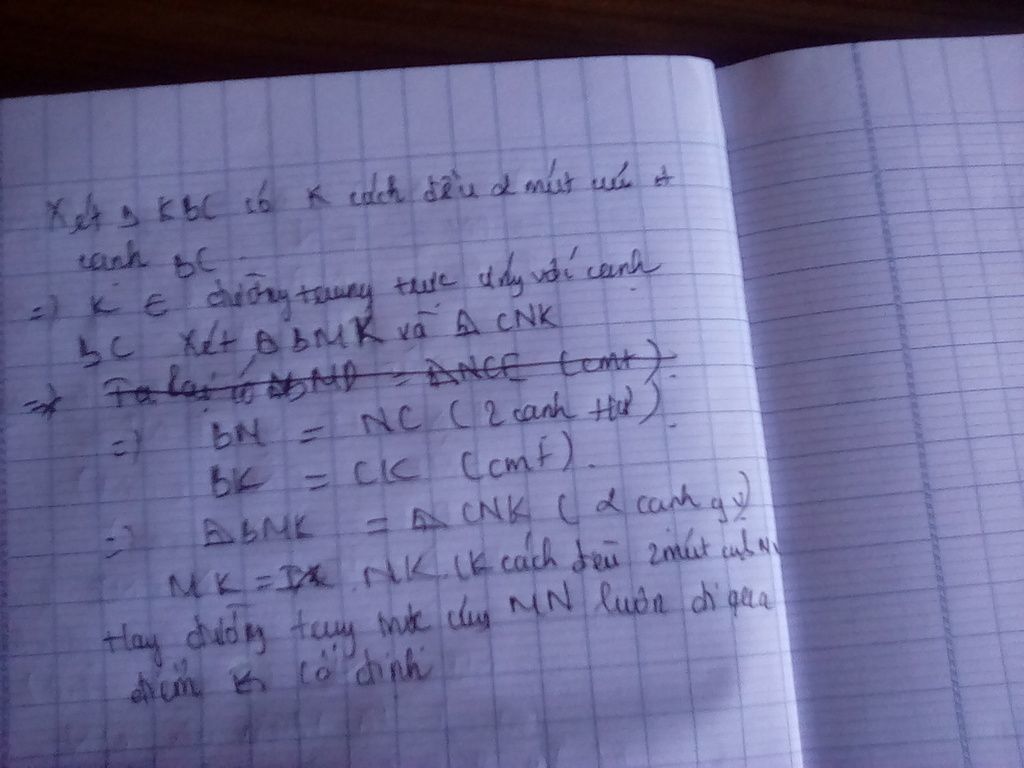 Xét Δ KBC có K cách đều 2 mút
canh BC
=) K ∈ đường trung trực ứng với canh
BC Xét Δ BMK và Δ CNK
=> Ta lại có ΔBMD = ΔNCE (cmt).
=) BM = NC (2 canh tư).
BK = CK (cmt).
=) ΔBMK = Δ CNK (2 canh gv)
MK = NK. (K cách đều 2 mút
Hay đường trung trực MN luôn đi qua
điểm K cố định